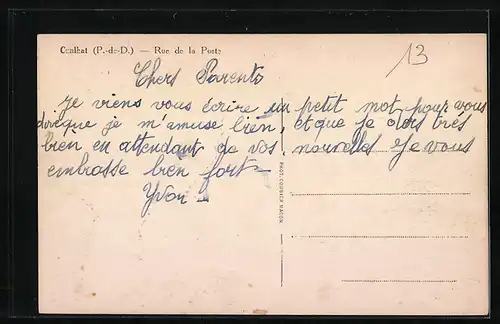 Cunlhat (P.-de-D.) — Rue de la Poste
13
Chers Parents
Je viens vous écrire un petit mot pour vous
dire que je m'amuse bien, et que je dors très
bien en attendant de vos nouvelles Je vous
embrasse bien fort —
Yvon —
PHOT. COMBIER MACON